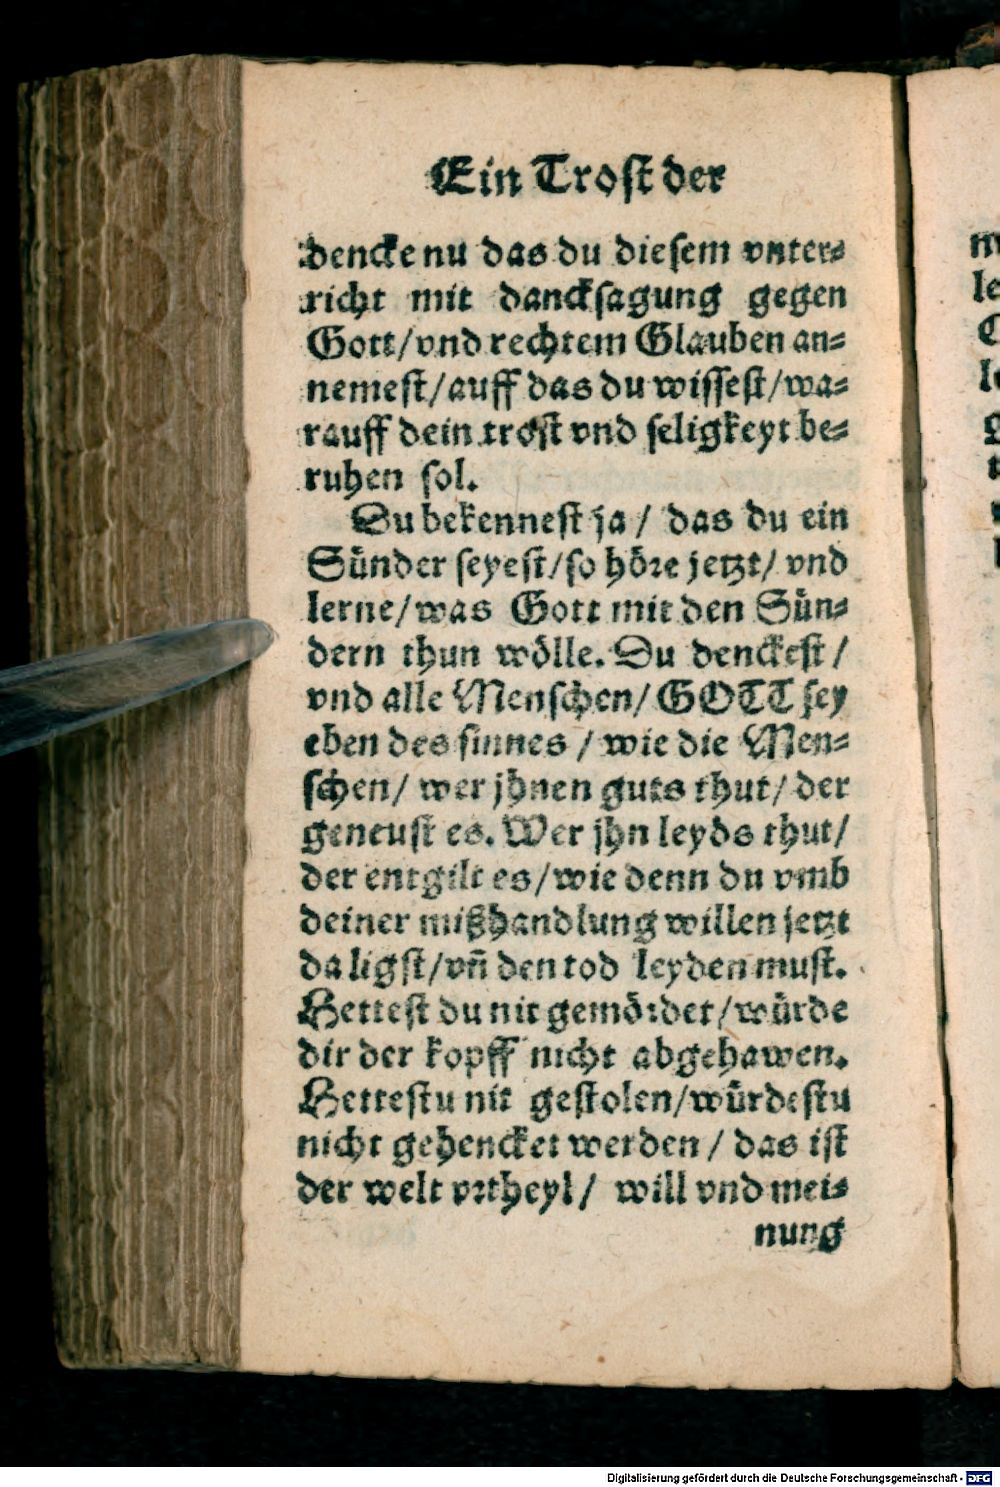 Ein Trost der
dencke nu das du diesem vnter⸗
richt mit dancksagung gegen
Gott/vnd rechtem Glauben an⸗
nemest/auff das du wissest/wa⸗
rauff dein trost vnd seligkeyt be⸗
ruhen sol.
Du bekennest ja/ das du ein
Sünder seyest/so höre jetzt/ vnd
lerne/was Gott mit den Sün⸗
dern thun wölle. Du denckest/
vnd alle Menschen/ GOTT sey
eben des sinnes / wie die Men⸗
schen/ wer jhnen guts thut/ der
geneust es. Wer jhn leyds thut/
der entgilt es/wie denn du vmb
deiner mißhandlung willen jetzt
da ligst/vñ den tod leyden must.
Hettest du nit gemördet/würde
dir der kopff nicht abgehawen.
Hettestu nit gestolen/würdestu
nicht gehencket werden / das ist
der welt vrtheyl/ will vnd mei⸗
nung
Digitalisierung gefördert durch die Deutsche Forschungsgemeinschaft - DFG